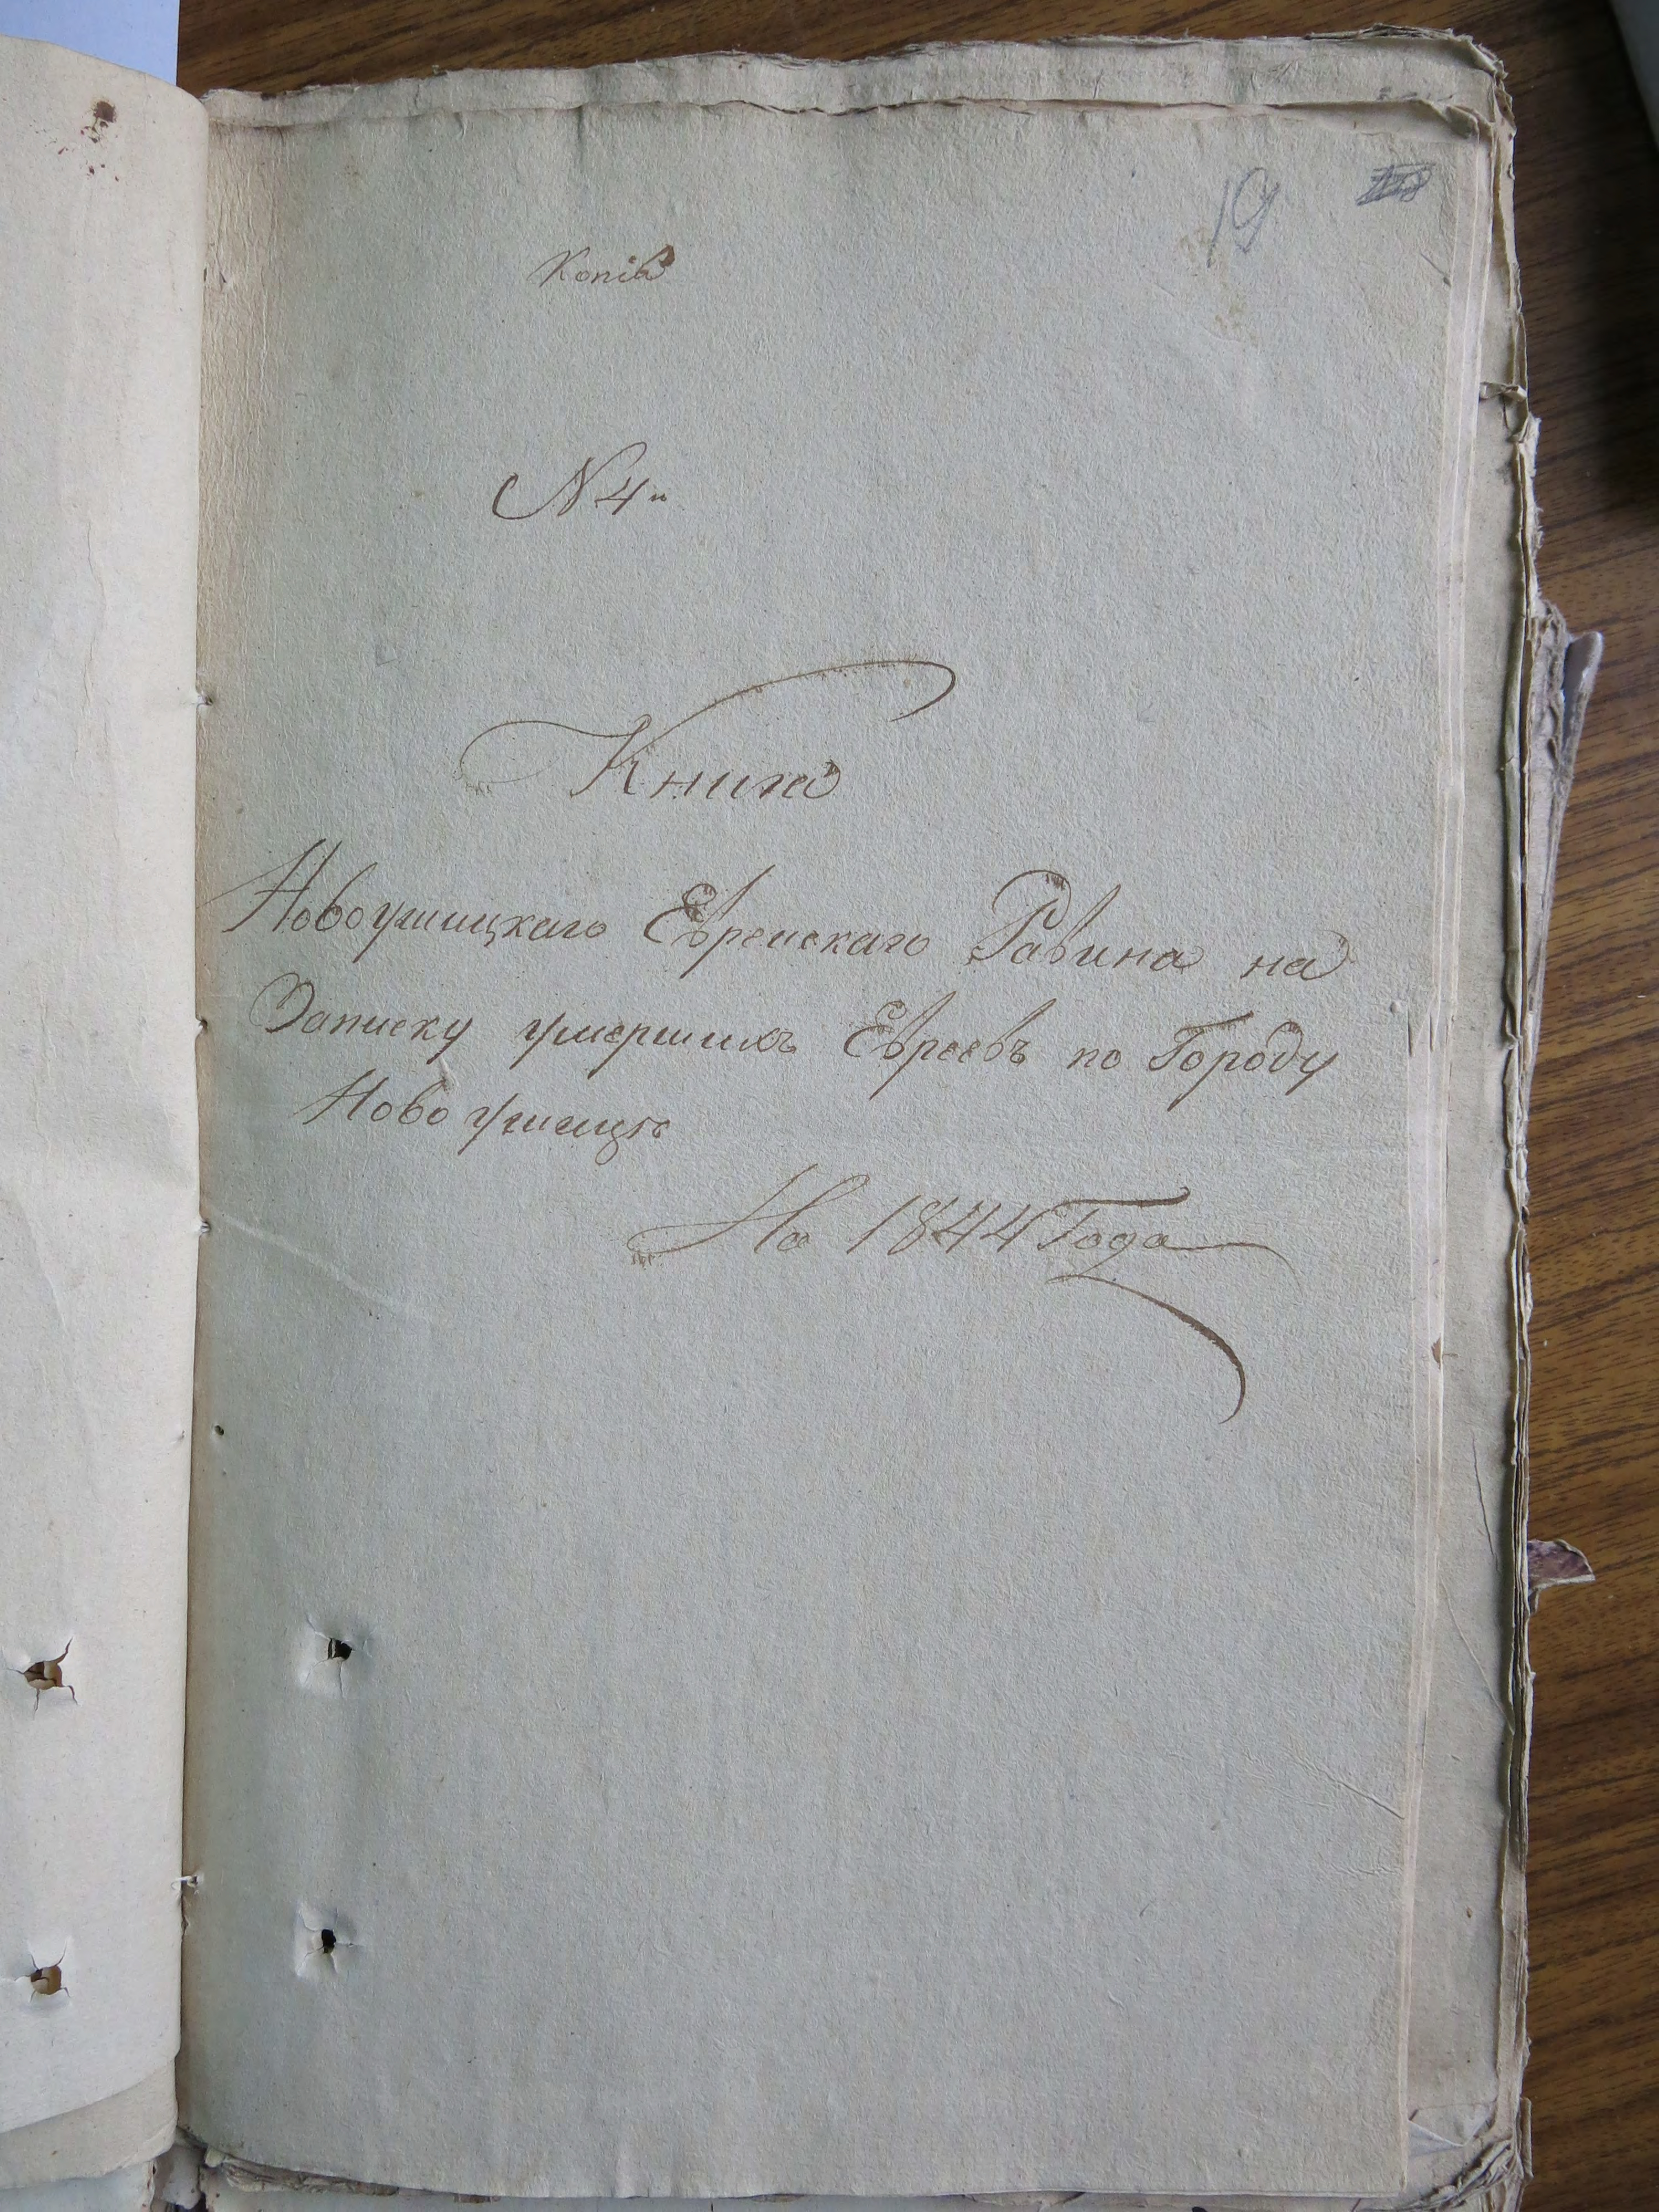 19
Копія
№ 4й
Книга
Новоушицкаго Еврейскаго Равина на
Записку умершихъ Евреевъ по Городу
Новоушицѣ
На 1844 Года